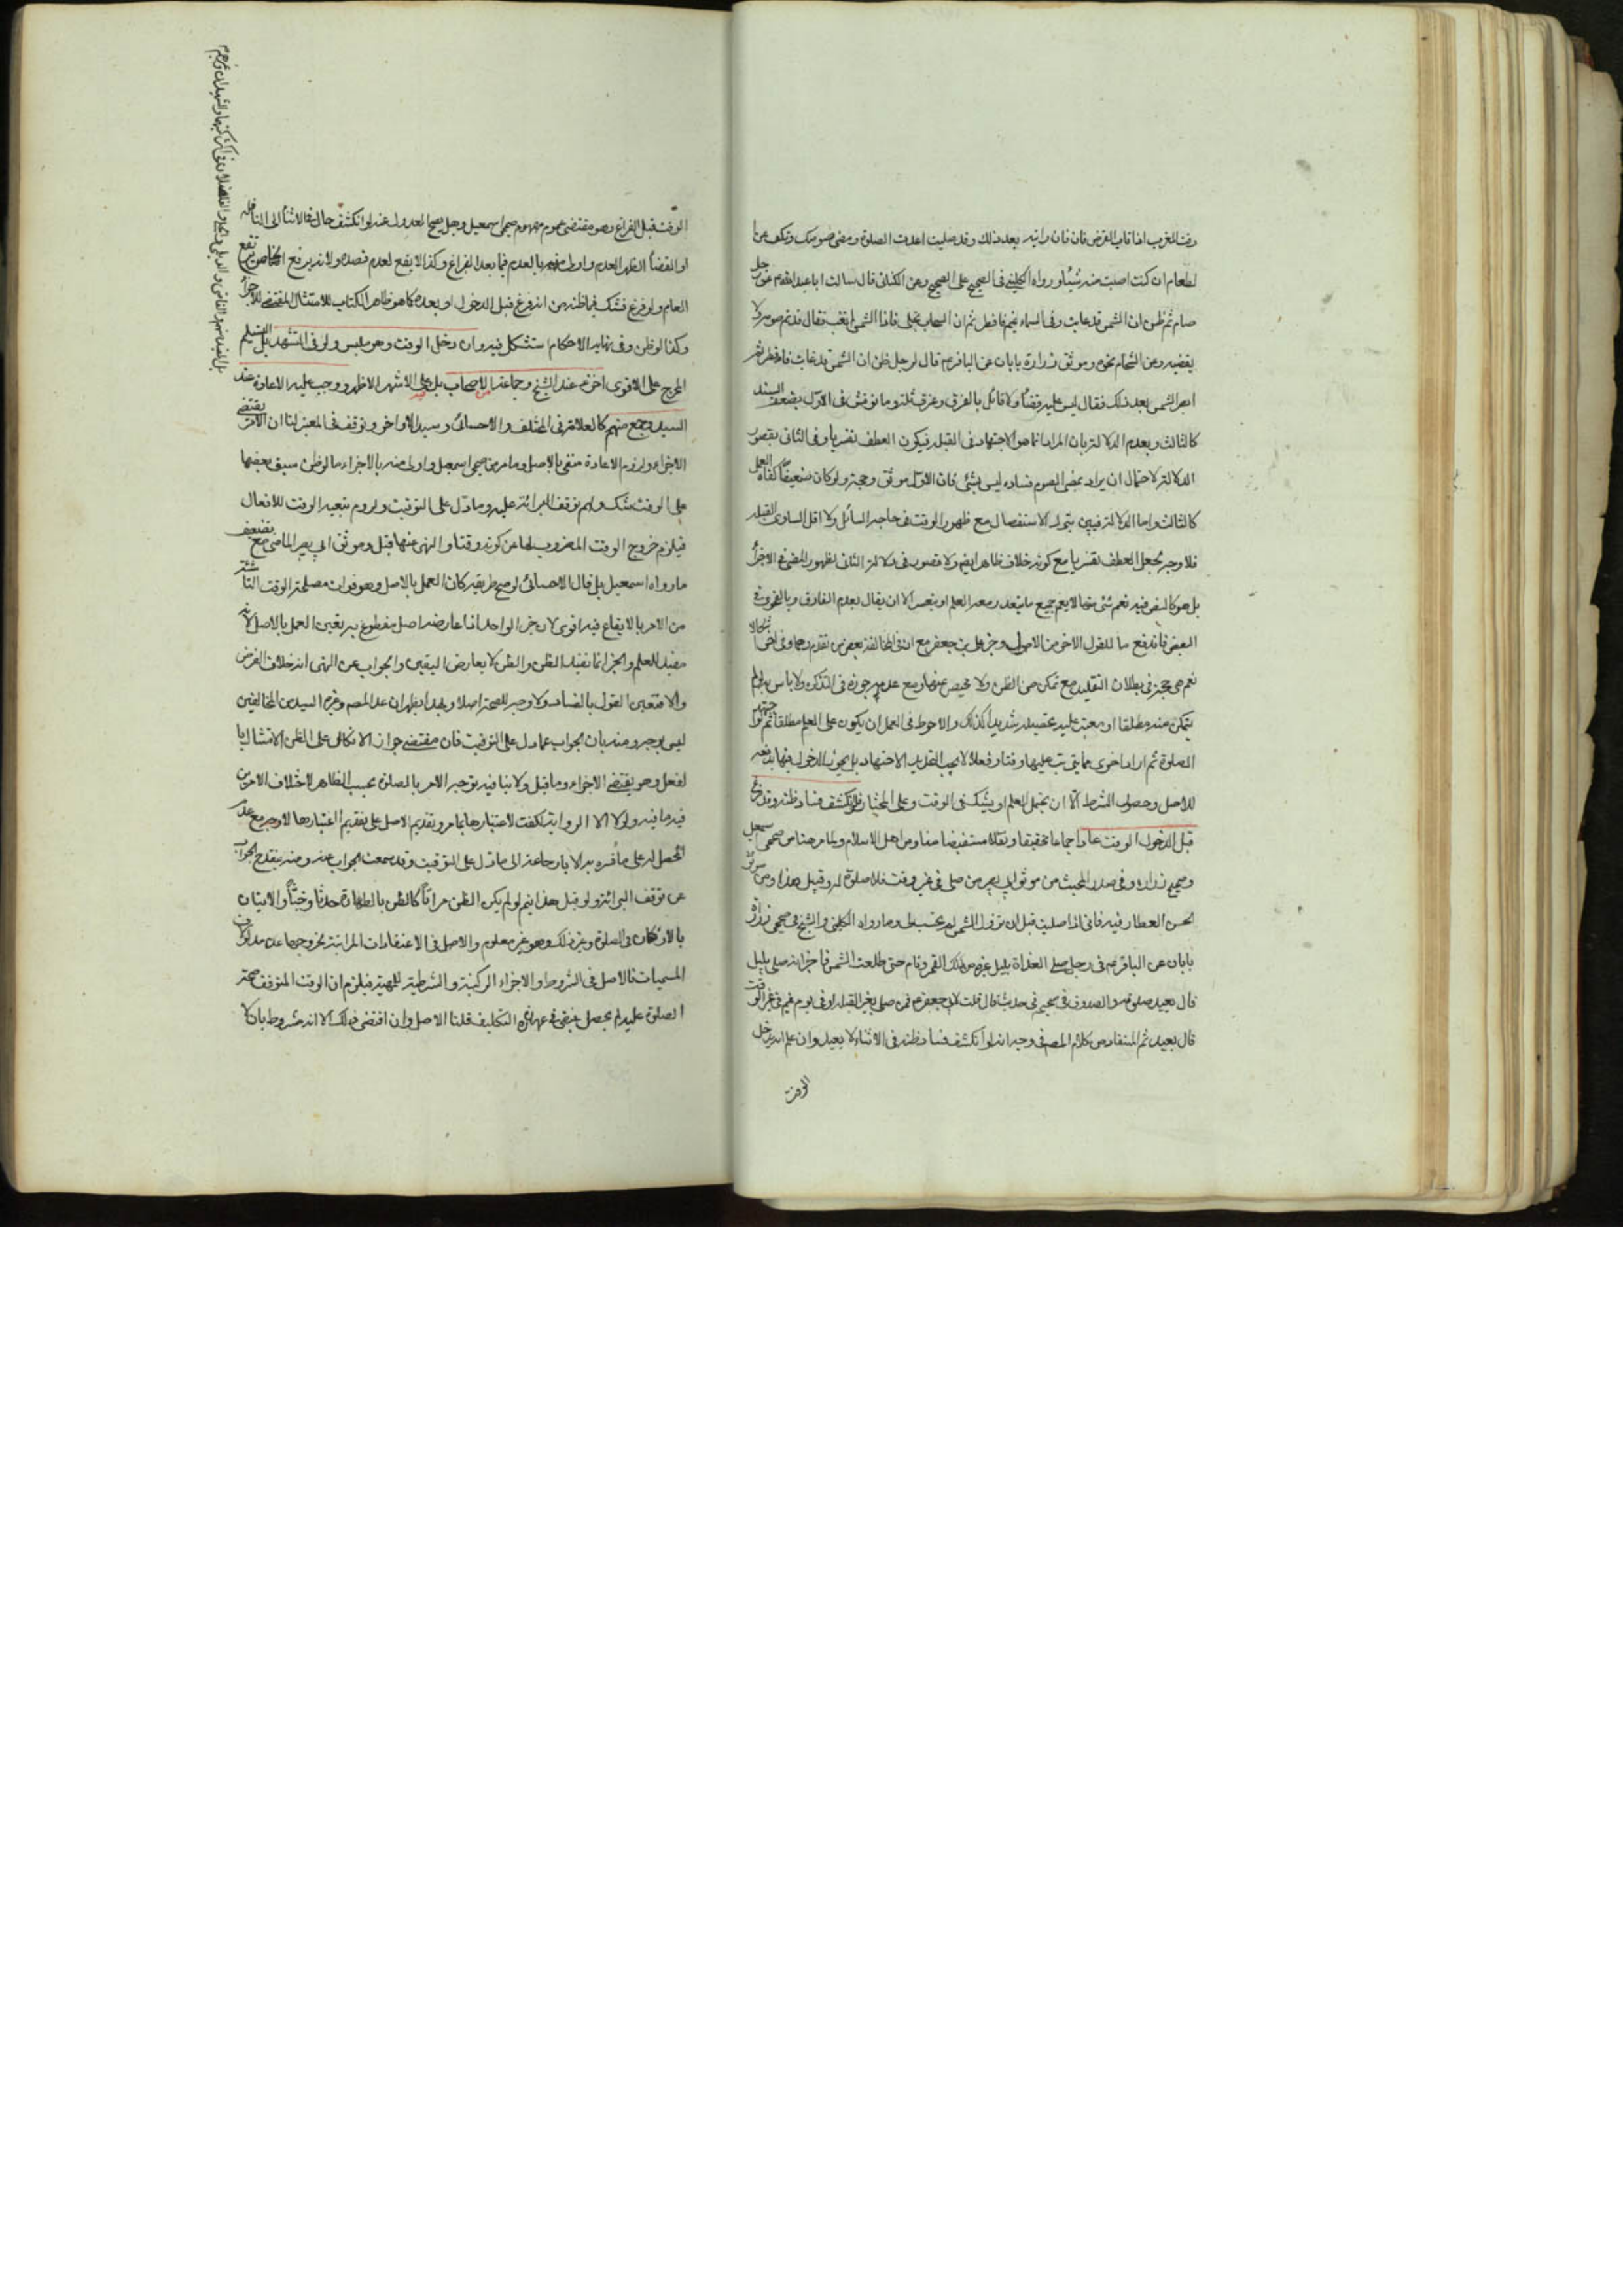 وقت المغرب اذا غاب القرص فان رايته بعد ذلك وقد صليت اعدت الصلوة ومضى صومك وتكف عن
الطعام ان كنت اصبت منه شيئا ورواه الكليني فى الصحيح على الصحيح وعن الكنانى قال سالت ابا عبد الله عم عن رجل
صام ثم ظن ان الشمس قد غابت وفى السماء غيم فافطر ثم ان السحاب انجلى فاذا الشمس لم تغب فقال قد تم صومه ولا
يقضيه وعن الشحام نحوه وموثق زرارة بابان عن الباقر عم قال لرجل ظن ان الشمس قد غابت فافطر ثم
ابصر الشمس بعد ذلك فقال ليس عليه قضاء ولا قائل بالفرق وما نوقش فى الاول بضعف السند
كالثالث وبعدم الدلالة بان المراد انما هو الاجتهاد فى القبلة فيكون العطف تفسيريا وفى الثانى بقصور
الدلالة لاحتمال ان يراد بمضى الصوم فساده ليس بشئ فان الاول موثق وحجة ولو كان ضعيفا كفاه العمل
كالثالث واما الدلالة فيبين بترك الاستفصال مع ظهور الوقت فى حاجة السائل ولا اقل التساوى القبلة
فلا وجه لجعل العطف تفسيريا مع كونه خلاف ظاهر ايضا ولا قصور فى دلالة الثانى لظهور المضى فى الاجزاء
بل هو كالنص فيه نعم شئ منها لا يعم جميع ما يتعذر معه العلم او يتعسر الا ان يقال بعدم الفارق
البعض فاندفع ما للقول الاخر من الاصول وخبر على بن جعفر مع ان فى المخالفة بعض من تقدم
نعم هى حجة فى بطلان التقليد مع تمكن من الظن ولا محيص عنها ومع عدمه جوزه فى التذكرة ولا باس به لو لم
يتمكن منه مطلقا او يعتبر عليه تحصيله شديدا كذلك والاحوط فى العمل ان يكون على العلم مطلقا ثم لو
الصلوة ثم اراد اخرى مما يترتب عليها وقتا وفعلا لا يجب التقليد الاجتهاد بل يجوز الدخول فيها بدفعه
للاصل وحصول الشرط الا ان يحتمل العلم او يشك فى الوقت وعلى المختار فلو انكشف فساد ظنه وقد فرغ
قبل الدخول الوقت اعاد اجماعا تحقيقا ونقلا مستفيضا منا ومن اهل الاسلام ولما مر هنا من صحيحى اسمعيل
وصحيح زرارة وفى صدر المبحث من موثق ابى بصير من صلى فى غير وقت فلا صلوة له وقبل هذا ومن موثق
الحسن العطار فيه فانى اذا صليت قبل ان تزول الشمس لم يحتسب لى وما رواه الكلينى والشيخ فى صحيحى زرارة
بابان عن الباقر عم فى رجل صلى الغداة بليل غره من ذلك القمر ونام حتى طلعت الشمس فاخبر انه صلى بليل
قال يعيد صلوته والصدوق فى صحيح فى حديث قال قلت لابى جعفر عم فمن صلى لغير القبلة او فى يوم غيم فى غير الوقت
قال يعيد ثم المستفاد من كلام المصنف فى وجه انه لو انكشف فساد ظنه فى الاثناء لا يعيد وان علم انه يدخل
الوقت
الوقت قبل الفراغ وهو مقتضى عموم مفهوم صحيحى اسمعيل وهل يصح العدول عنه لو انكشف حال فى الاثناء الى النافلة
او القضاء الظاهر العدم واولى منه بالعدم فيما بعد الفراغ وكذا لا يقع لعدم قصده ولانه يرفع الخاص
العام ولو فرغ فشك فيما ظنه من انه فرغ قبل الدخول او بعده كما هو ظاهر الكتاب للامتثال المقتضى للاجزاء
وكذا لو ظن وفى نهاية الاحكام استشكل فيه وان دخل الوقت وهو متلبس ولو فى التشهد بل التسليم
المخرج على الاقوى اجزء عند الشيخ وجماعة من الاصحاب بل على الاشهر الاظهر ووجب عليه الاعادة عند
السيد وجمع منهم كالعلامة فى المختلف والاحسائى وسيد الاواخر وتوقف فى المعتبر لنا ان الامر يقتضى
الاجزاء ولزوم الاعادة منفى بالاصل وما مر من صحيحى اسمعيل واولى منه بالاجزاء ما لو ظن سبق بعضها
على الوقت بشك ولهم توقف البرائة عليه وما دل على التوقيت ولزوم تبعية الوقت للافعال
فيلزم خروج الوقت المضروب لها عن كونه وقتا والنهى عنها قبل وموثق ابى بصير الماضى مع تضعيف
ما رواه اسمعيل بل قال الاحسائى لو صح طريقه كان العمل بالاصل وهو فوات مصلحة الوقت
من الامر بالايقاع فيه اقوى لان خبر الواحد اذا عارضه اصل مقطوع به تعين العمل بالاصل لانه
مفيد للعلم والخبر انما يفيد الظن والظن لا يعارض اليقين والجواب عن النهى انه خلاف الفرض
والا فتعين القول بالفساد ولا وجه للصحة اصلا وبهذا يظهر ان عد المصنف وغيره السيد من المخالفين
ليس بوجه ومنه بان الجواب عما دل على التوقيت فان مقتضى جواز الاتكال على الظن الامتثال
لفعل وهو يقتضى الاجزاء وما قبل ولا ينافيه توجه الامر بالصلوة بحسب الظاهر لاختلاف الامرين
فيه ما فيه ولولا الا الرواية لكفت لاعتبارها بما مر وتقديم الاصل على تقديم اعتبارها لا وجه مع عدم
الحصل له على ما فسره به الا بارجاعه الى ما دل على التوقيت وقد سمعت الجواب عنه ومنه ينقدح الجواب
عن توقف البرائة ولو قبل هذا نعم لو لم يكن الظن مراتا كالظن بالطهارة حدثا وخبثا والاتيان
بالاركان فى الصلوة وغير ذلك وهو غير معلوم والاصل فى الاعتقادات المراتية خروجها عن مدلول
المسميات فالاصل فى الشروط والاجزاء الركنية والشرطية للمهية فيلزم ان الوقت المتوقف صحة
الصلوة عليه لم يحصل فيبقى فى عهدة التكليف قلنا الاصل وان اقتضى ذلك الا انه مشروط بان لا